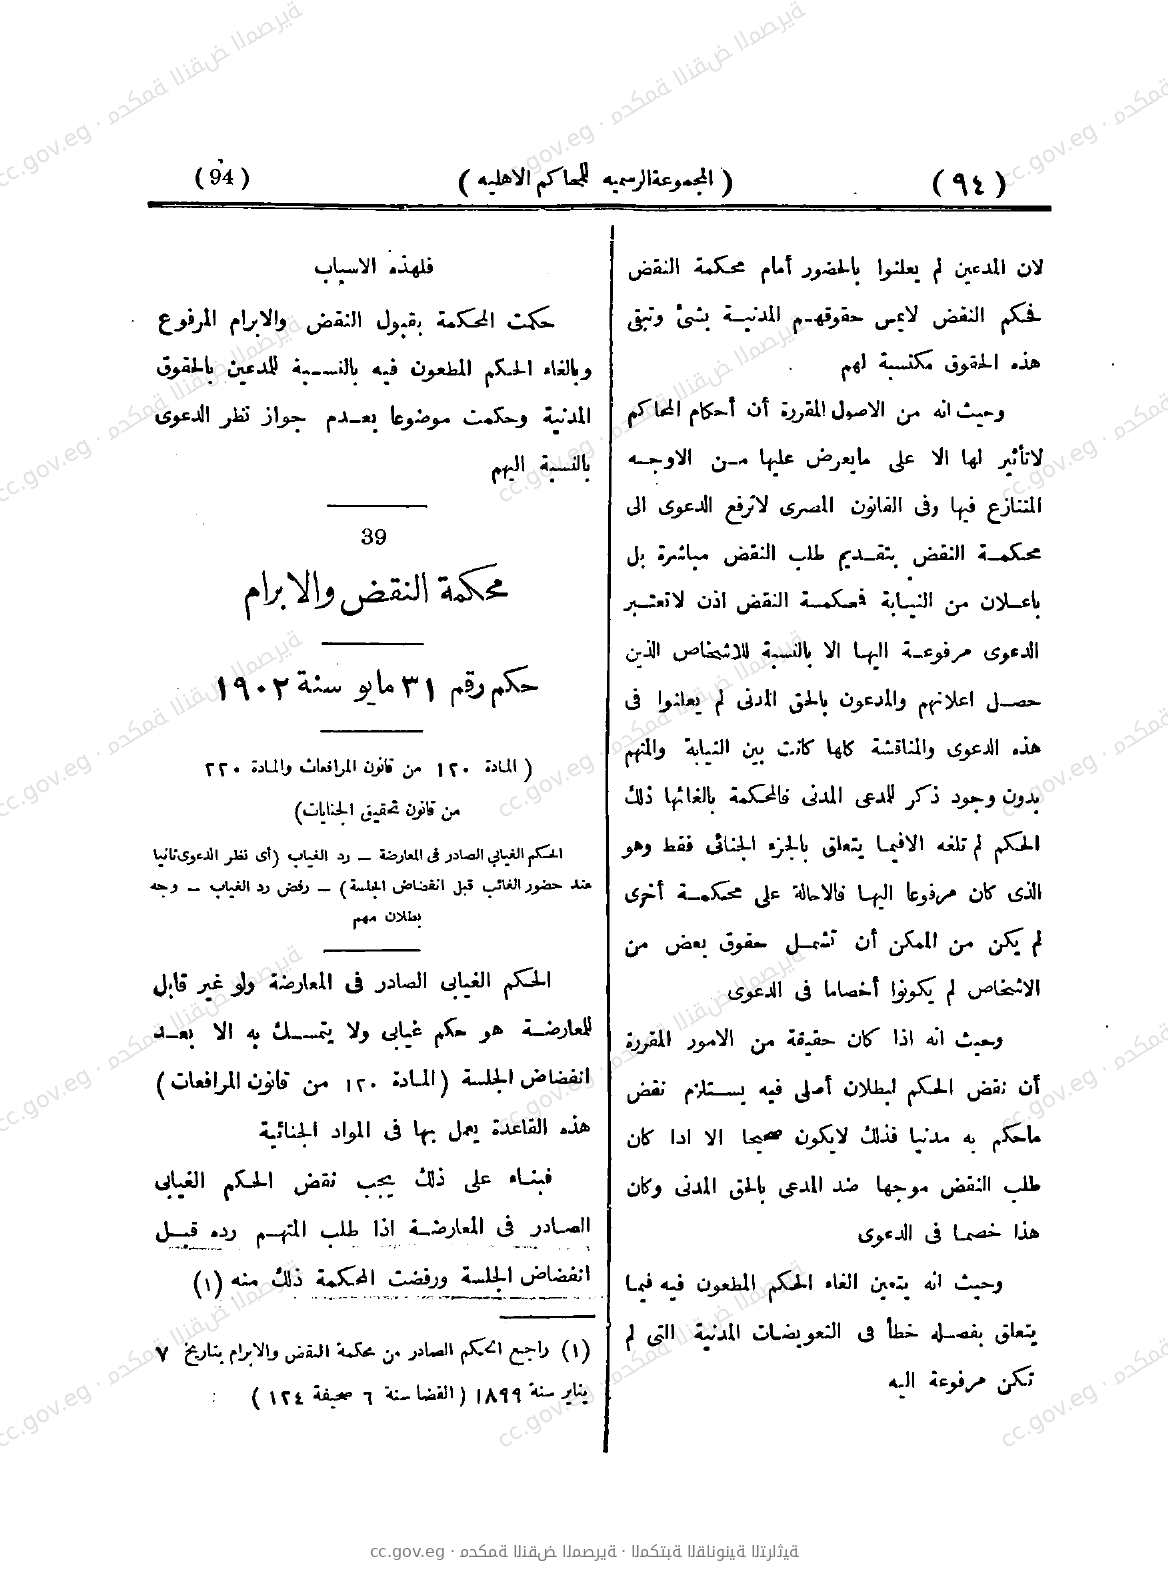 (٩٤) (المجموعة الرسميه للمحاكم الاهليه) (94)
لان المدعين لم يعلنوا بالحضور أمام محكمة النقض
فحكم النقض لايمس حقوقهم المدنيـة بشئ وتبقى
هذه الحقوق مكتسبة لهم
وحيث انه من الاصول المقررة أن أحكام المحاكم
لاتأثير لها الا على مايعرض عليها مـن الاوجـه
المتنازع فيها وفى القانون المصرى لاترفع الدعوى الى
محكمـة النقض بتقـديم طلب النقض مباشرة بل
باعـلان من النيـابة فمحكمـة النقض اذن لاتعتـبر
الدعوى مرفوعـة اليهـا الا بالنسبة للاشخاص الذين
حصـل اعلانهم والمدعون بالحق المدنى لم يعلنوا فى
هذه الدعوى والمناقشة كلها كانت بين النيابة والمتهم
بدون وجود ذكر للمدعى المدنى فالمحكمة بالغائها ذلك
الحكم لم تلغه الافيمـا يتعلق بالجزء الجنائى فقط وهو
الذى كان مرفوعا اليهـا فالاحالة على محكمـة أخرى
لم يكن من الممكن أن تشمـل حقوق بعض من
الاشخاص لم يكونوا أخصاما فى الدعوى
وحيث انه اذا كان حقيقة من الامور المقررة
أن نقض الحكم لبطلان أصلى فيه يسـتلزم نقض
ماحكم به مدنيا فذلك لايكون صحيحا الا اذا كان
طلب النقض موجها ضد المدعى بالحق المدنى وكان
هذا خصمـا فى الدعوى
وحيث انه يتعين الغاء الحكم المطعون فيه فيمـا
يتعلق بفصـله خطأ فى التعويضات المدنية التى لم
تكن مرفوعة اليه
فلهذه الاسباب
حكمت المحكمة بقبول النقض والابرام المرفوع
وبالغاء الحكم المطعون فيه بالنسـبة للمدعين بالحقوق
المدنية وحكمت موضوعا بعـدم جواز نظر الدعوى
بالنسبة اليهم
39
محكمة النقض والابرام
حكم رقم ٣١ مايو سنة ١٩٠٢
( المادة ١٢٠ من قانون المرافعات والمادة ٢٢٠
من قانون تحقيق الجنايات)
الحكم الغيابي الصادر فى المعارضة – رد الغياب (أى نظر الدعوى ثانيا
عند حضور الغائب قبل انفضاض الجلسة) – رفض رد الغياب – وجه
بطلان مهم
الحكم الغيابى الصادر فى المعارضة ولو غير قابل
للمعارضـة هو حكم غيابى ولا يتمسـك به الا بعـد
انفضاض الجلسة (المادة ١٢٠ من قانون المرافعات)
هذه القاعدة يعمل بها فى المواد الجنائية
فبنـاء على ذلك يجب نقض الحكم الغيابى
الصـادر فى المعارضـة اذا طلب المتهـم رده قبـل
انفضاض الجلسة ورفضت المحكمة ذلك منه (١)
(١) راجع الحكم الصادر من محكمة النقض والابرام بتاريخ ٧
يناير سنة ١٨٩٩ (القضا سنة ٦ صحيفة ١٢٤)
cc.gov.eg · محكمة النقض المصرية · المكتبة القانونية التراثية